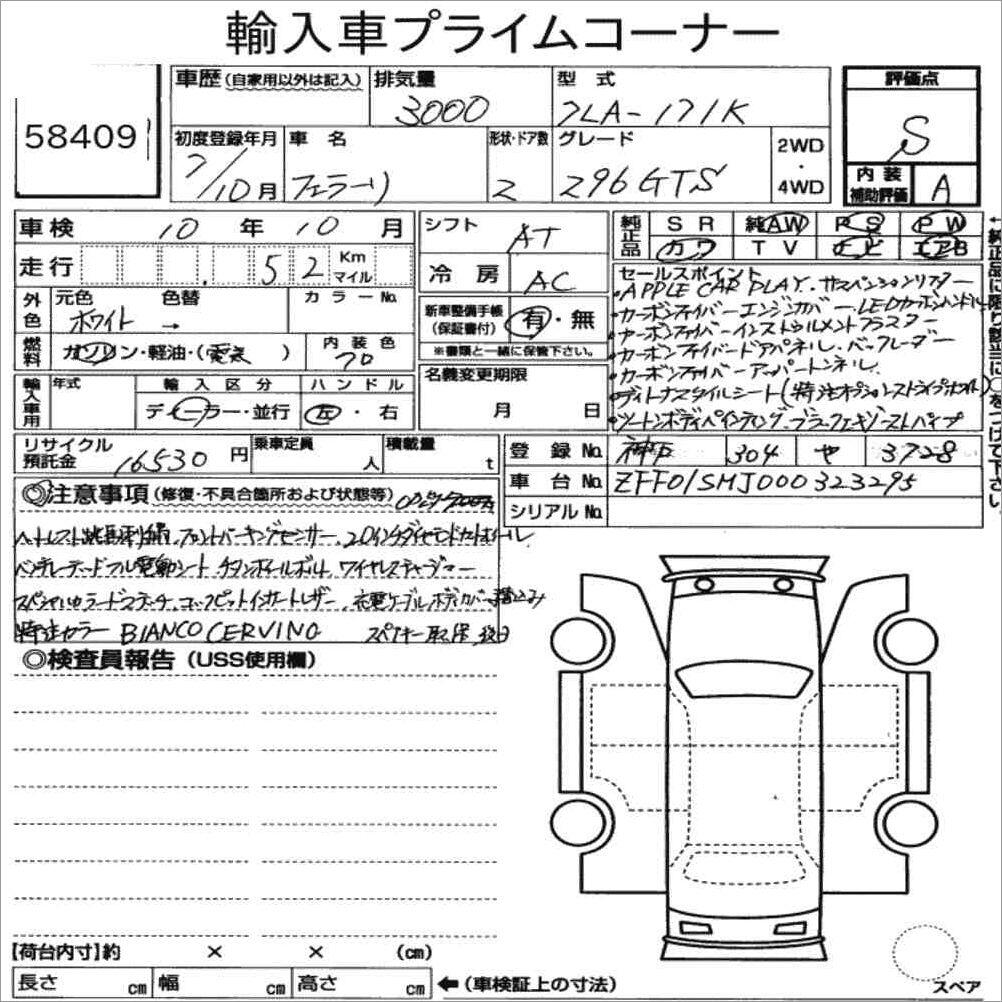 輸入車プライムコーナー
58409
車歴 (自家用以外は記入) 排気量 3000 型式 7LA-171K
評価点 S
初度登録年月 7/10月 車名 フェラーリ 形状・ドア数 2 グレード 296GTS 2WD・4WD
内装補助評価 A
車検 10年10月
走行 52 Km マイル
シフト AT
冷房 AC
純正品 SR 純AW PS PW
カワ TV ナビ エアB
外色 元色 ホワイト 色替 → カラーNo.
燃料 ガソリン・軽油・(電気) 内装色 70
新車整備手帳(保証書付) 有・無
※書類と一緒に保管下さい。
輸入車用 年式 輸入区分 ディーラー・並行 ハンドル 左・右
名義変更期限 月 日
セールスポイント
・APPLE CAR PLAY. サスペンションリフター
・カーボンファイバーエンジンカバー LEDカーボンハンドル
・カーボンファイバーインストゥルメントクラスター
・カーボンファイバードアパネル.
・カーボンファイバーアッパートンネル.
・デイトナスタイルシート(特注オプションストライプホワイト)
・ツートンボディペインティング.
リサイクル預託金 16530円 乗車定員 人 積載量 t
登録No. 神戸 304 や 3728
車台No. ZFF01SMJ000323295
シリアルNo.
◎注意事項 (修復・不具合箇所および状態等)
ヘッドレスト跳馬刺繍. フロントパーキングセンサー. 20インチダイヤモンドカットホイール
ベンチレーテッドフル電動シート チタンホイールボルト. ワイヤレスチャージャー
スペシャルカラードステッチ. コックピットインサートレザー. 充電ケーブル.ボディカバー積込み
特注カラー BIANCO CERVINO スペアキー取保 後日
◎検査員報告 (USS使用欄)
【荷台内寸】約 × × (cm)
長さ cm 幅 cm 高さ cm ←(車検証上の寸法)
スペア